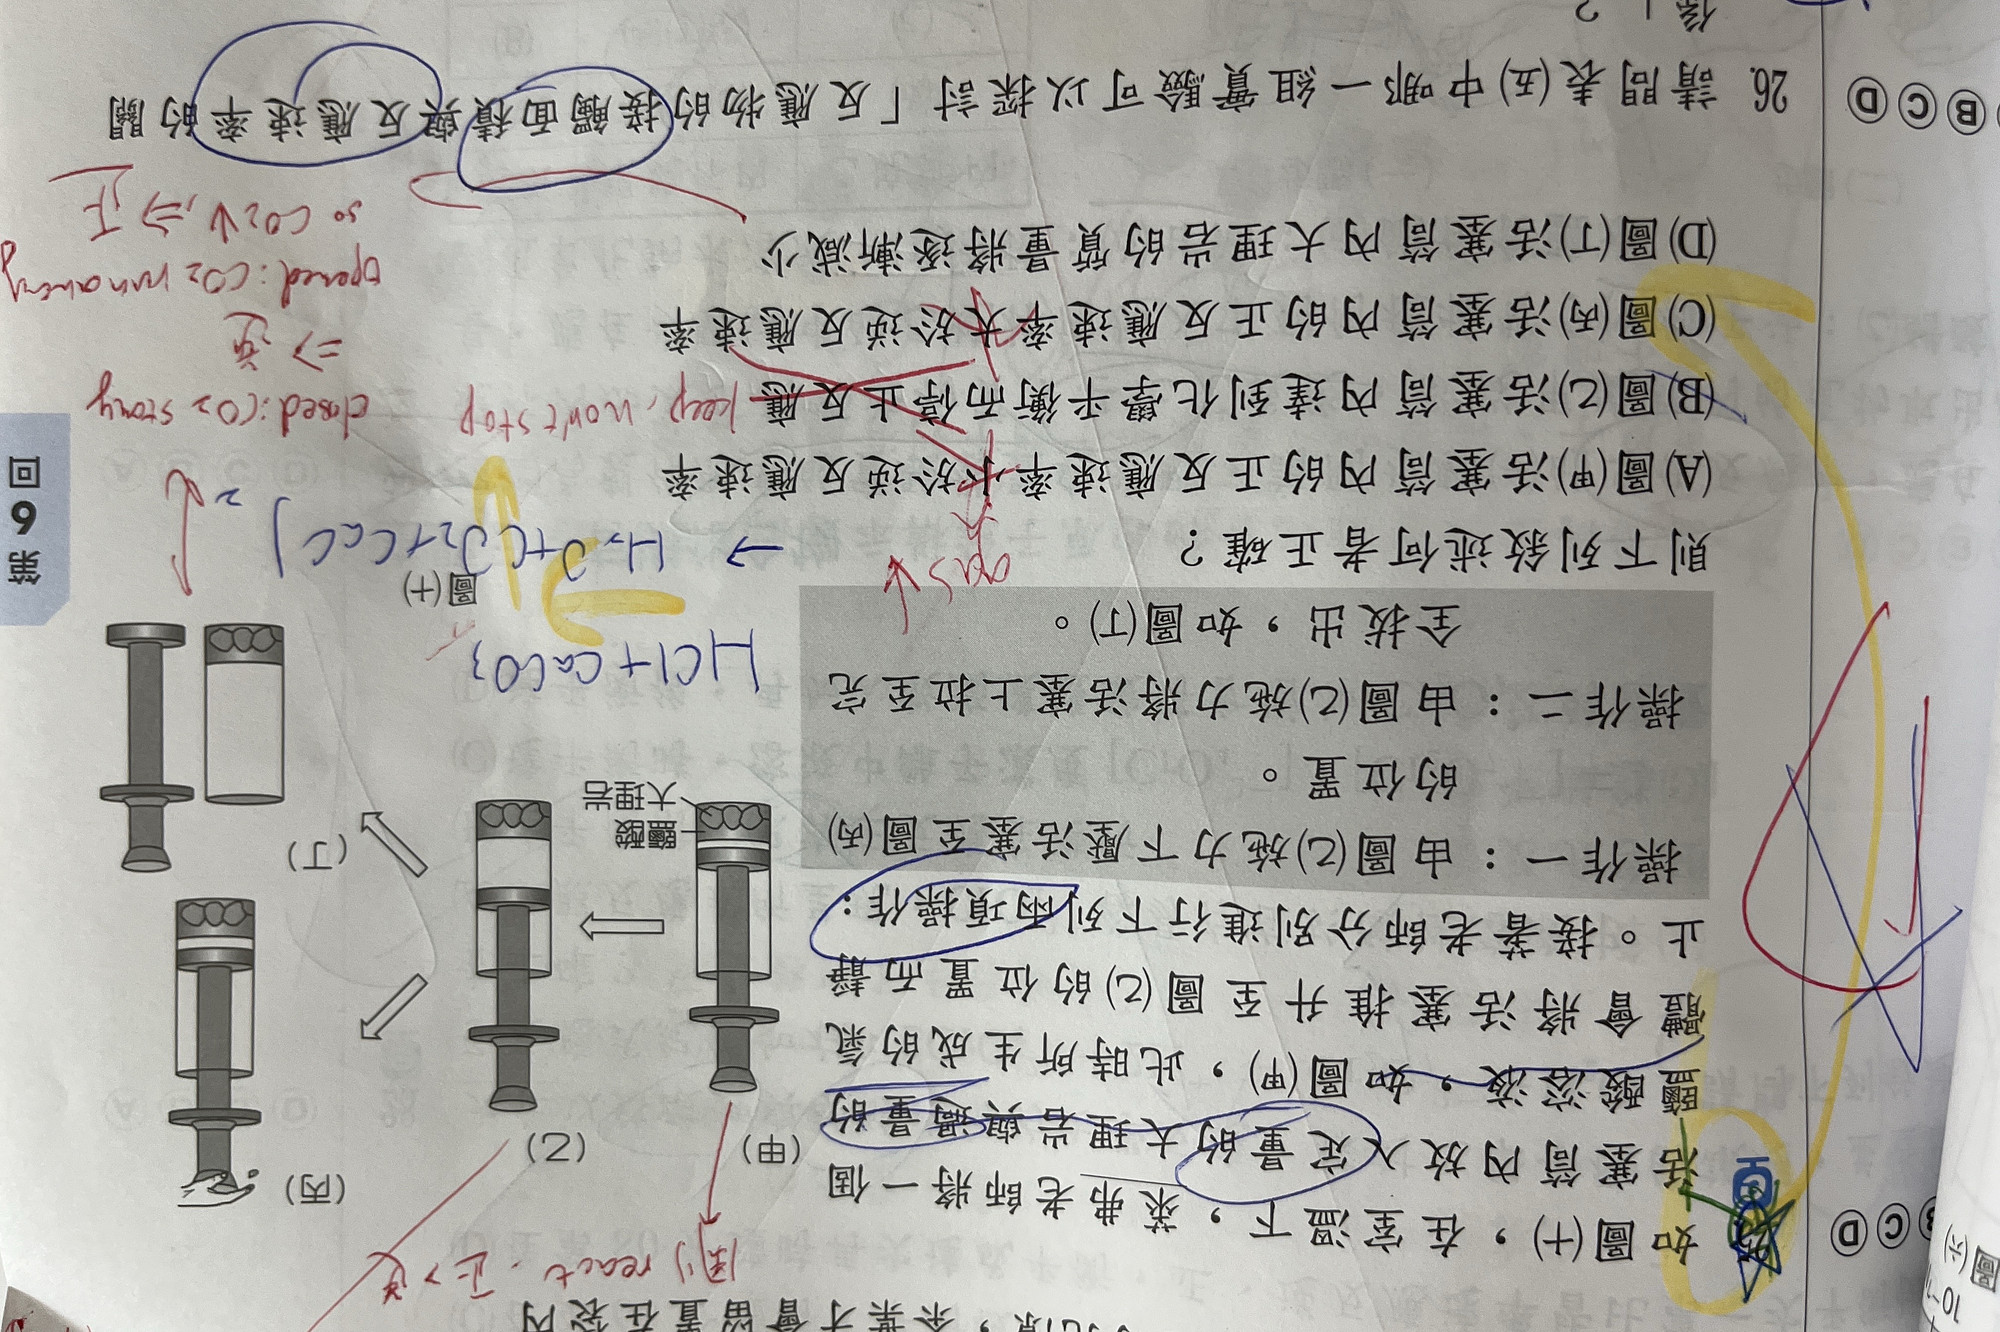 第6回
如圖(十)，在室溫下，萊弗老師將一個
活塞筒內放入定量的大理岩與適量的
鹽酸溶液，如圖(甲)，此時所生成的氣
體會將活塞推升至圖(乙)的位置而靜
止。接著老師分別進行下列兩項操作：
操作一：由圖(乙)施力下壓活塞至圖(丙)
的位置。
操作二：由圖(乙)施力將活塞上拉至完
全拔出，如圖(丁)。
則下列敘述何者正確？
(A)圖(甲)活塞筒內的正反應速率小於逆反應速率
(B)圖(乙)活塞筒內達到化學平衡而停止反應
keep, won't stop
(C)圖(丙)活塞筒內的正反應速率大於逆反應速率
(D)圖(丁)活塞筒內大理岩的質量將逐漸減少
(甲)
(乙)
(丙)
(丁)
鹽酸
大理岩
圖(十)
剛react，正>逆
HCl+CaCO3
→ H2O+CO2+CaCl2
gas↓
closed: CO2 strong
=> 逆
opened: CO2 run away
so CO2↓, => 正
26. 請問表(五)中哪一組實驗可以探討「反應物的接觸面積與反應速率的關
係」？
B C D
B C D
圖(六)